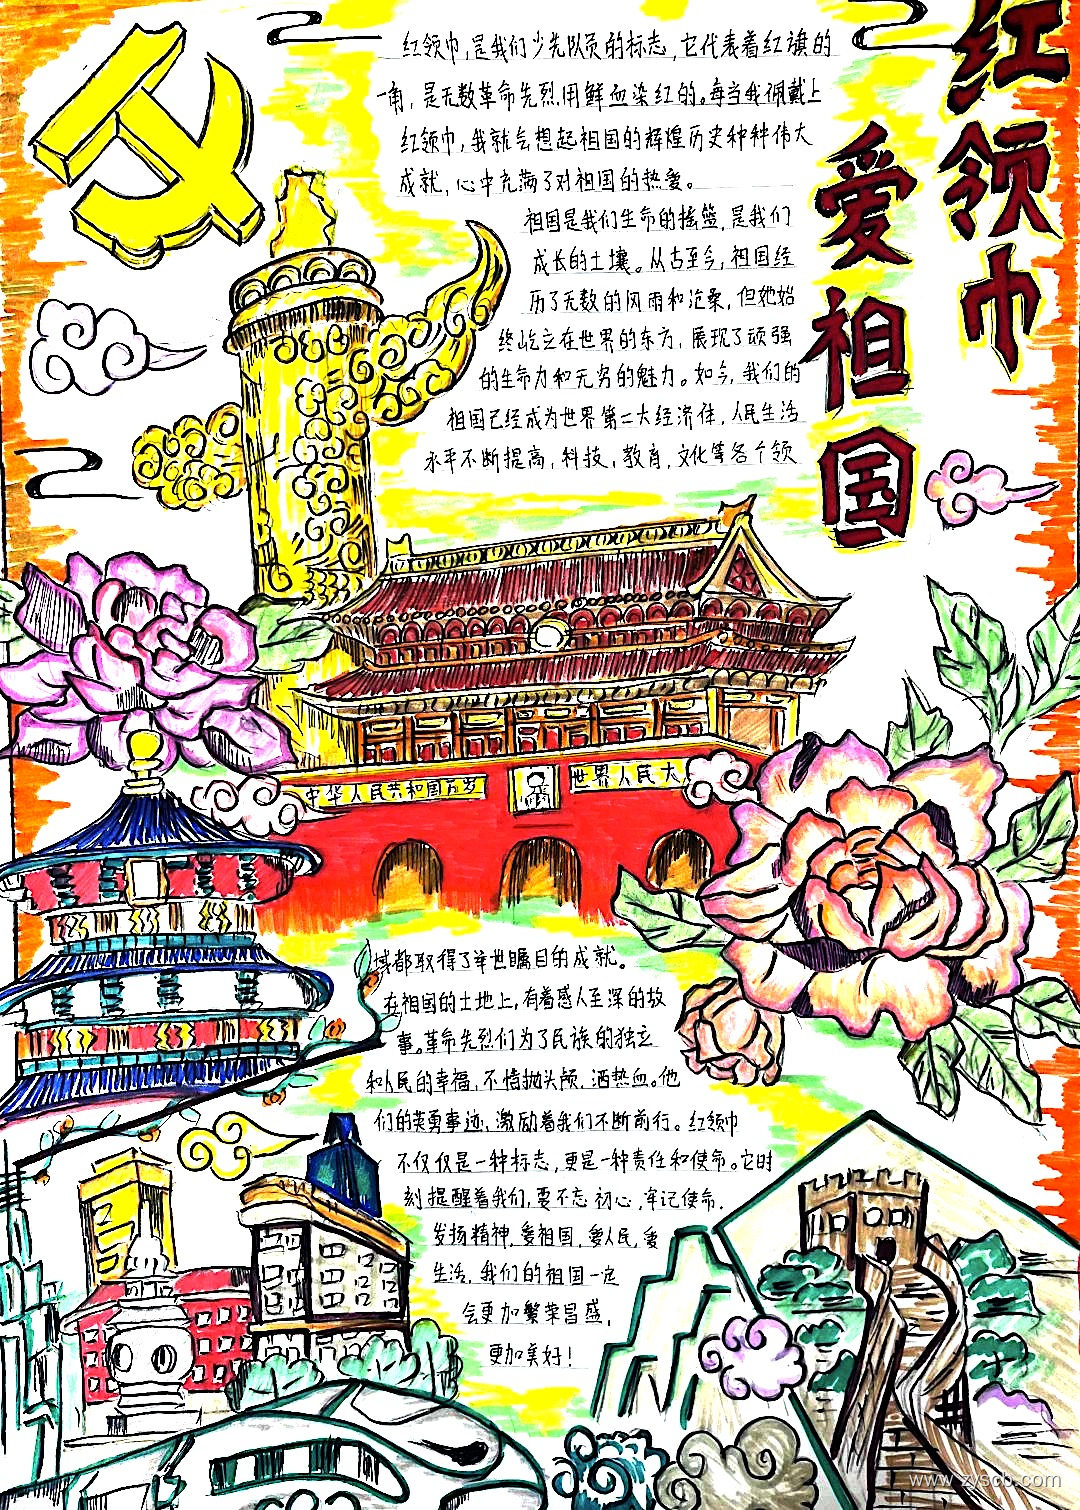 红领巾
爱祖国
红领巾,是我们少先队员的标志,它代表着红旗的
一角,是无数革命先烈用鲜血染红的。每当我佩戴上
红领巾,我就会想起祖国的辉煌历史种种伟大
成就,心中充满了对祖国的热爱。
祖国是我们生命的摇篮,是我们
成长的土壤。从古至今,祖国经
历了无数的风雨和沧桑,但她始
终屹立在世界的东方,展现了顽强
的生命力和无穷的魅力。如今,我们的
祖国已经成为世界第二大经济体,人民生活
水平不断提高,科技,教育,文化等各个领
中华人民共和国万岁
世界人民大
域都取得了举世瞩目的成就。
在祖国的土地上,有着感人至深的故
事。革命先烈们为了民族的独立
和人民的幸福,不惜抛头颅,洒热血。他
们的英勇事迹,激励着我们不断前行。红领巾
不仅仅是一种标志,更是一种责任和使命。它时
刻提醒着我们,要不忘初心,牢记使命,
发扬精神,爱祖国,爱人民,爱
生活,我们的祖国一定
会更加繁荣昌盛,
更加美好!
www.zyscb.com